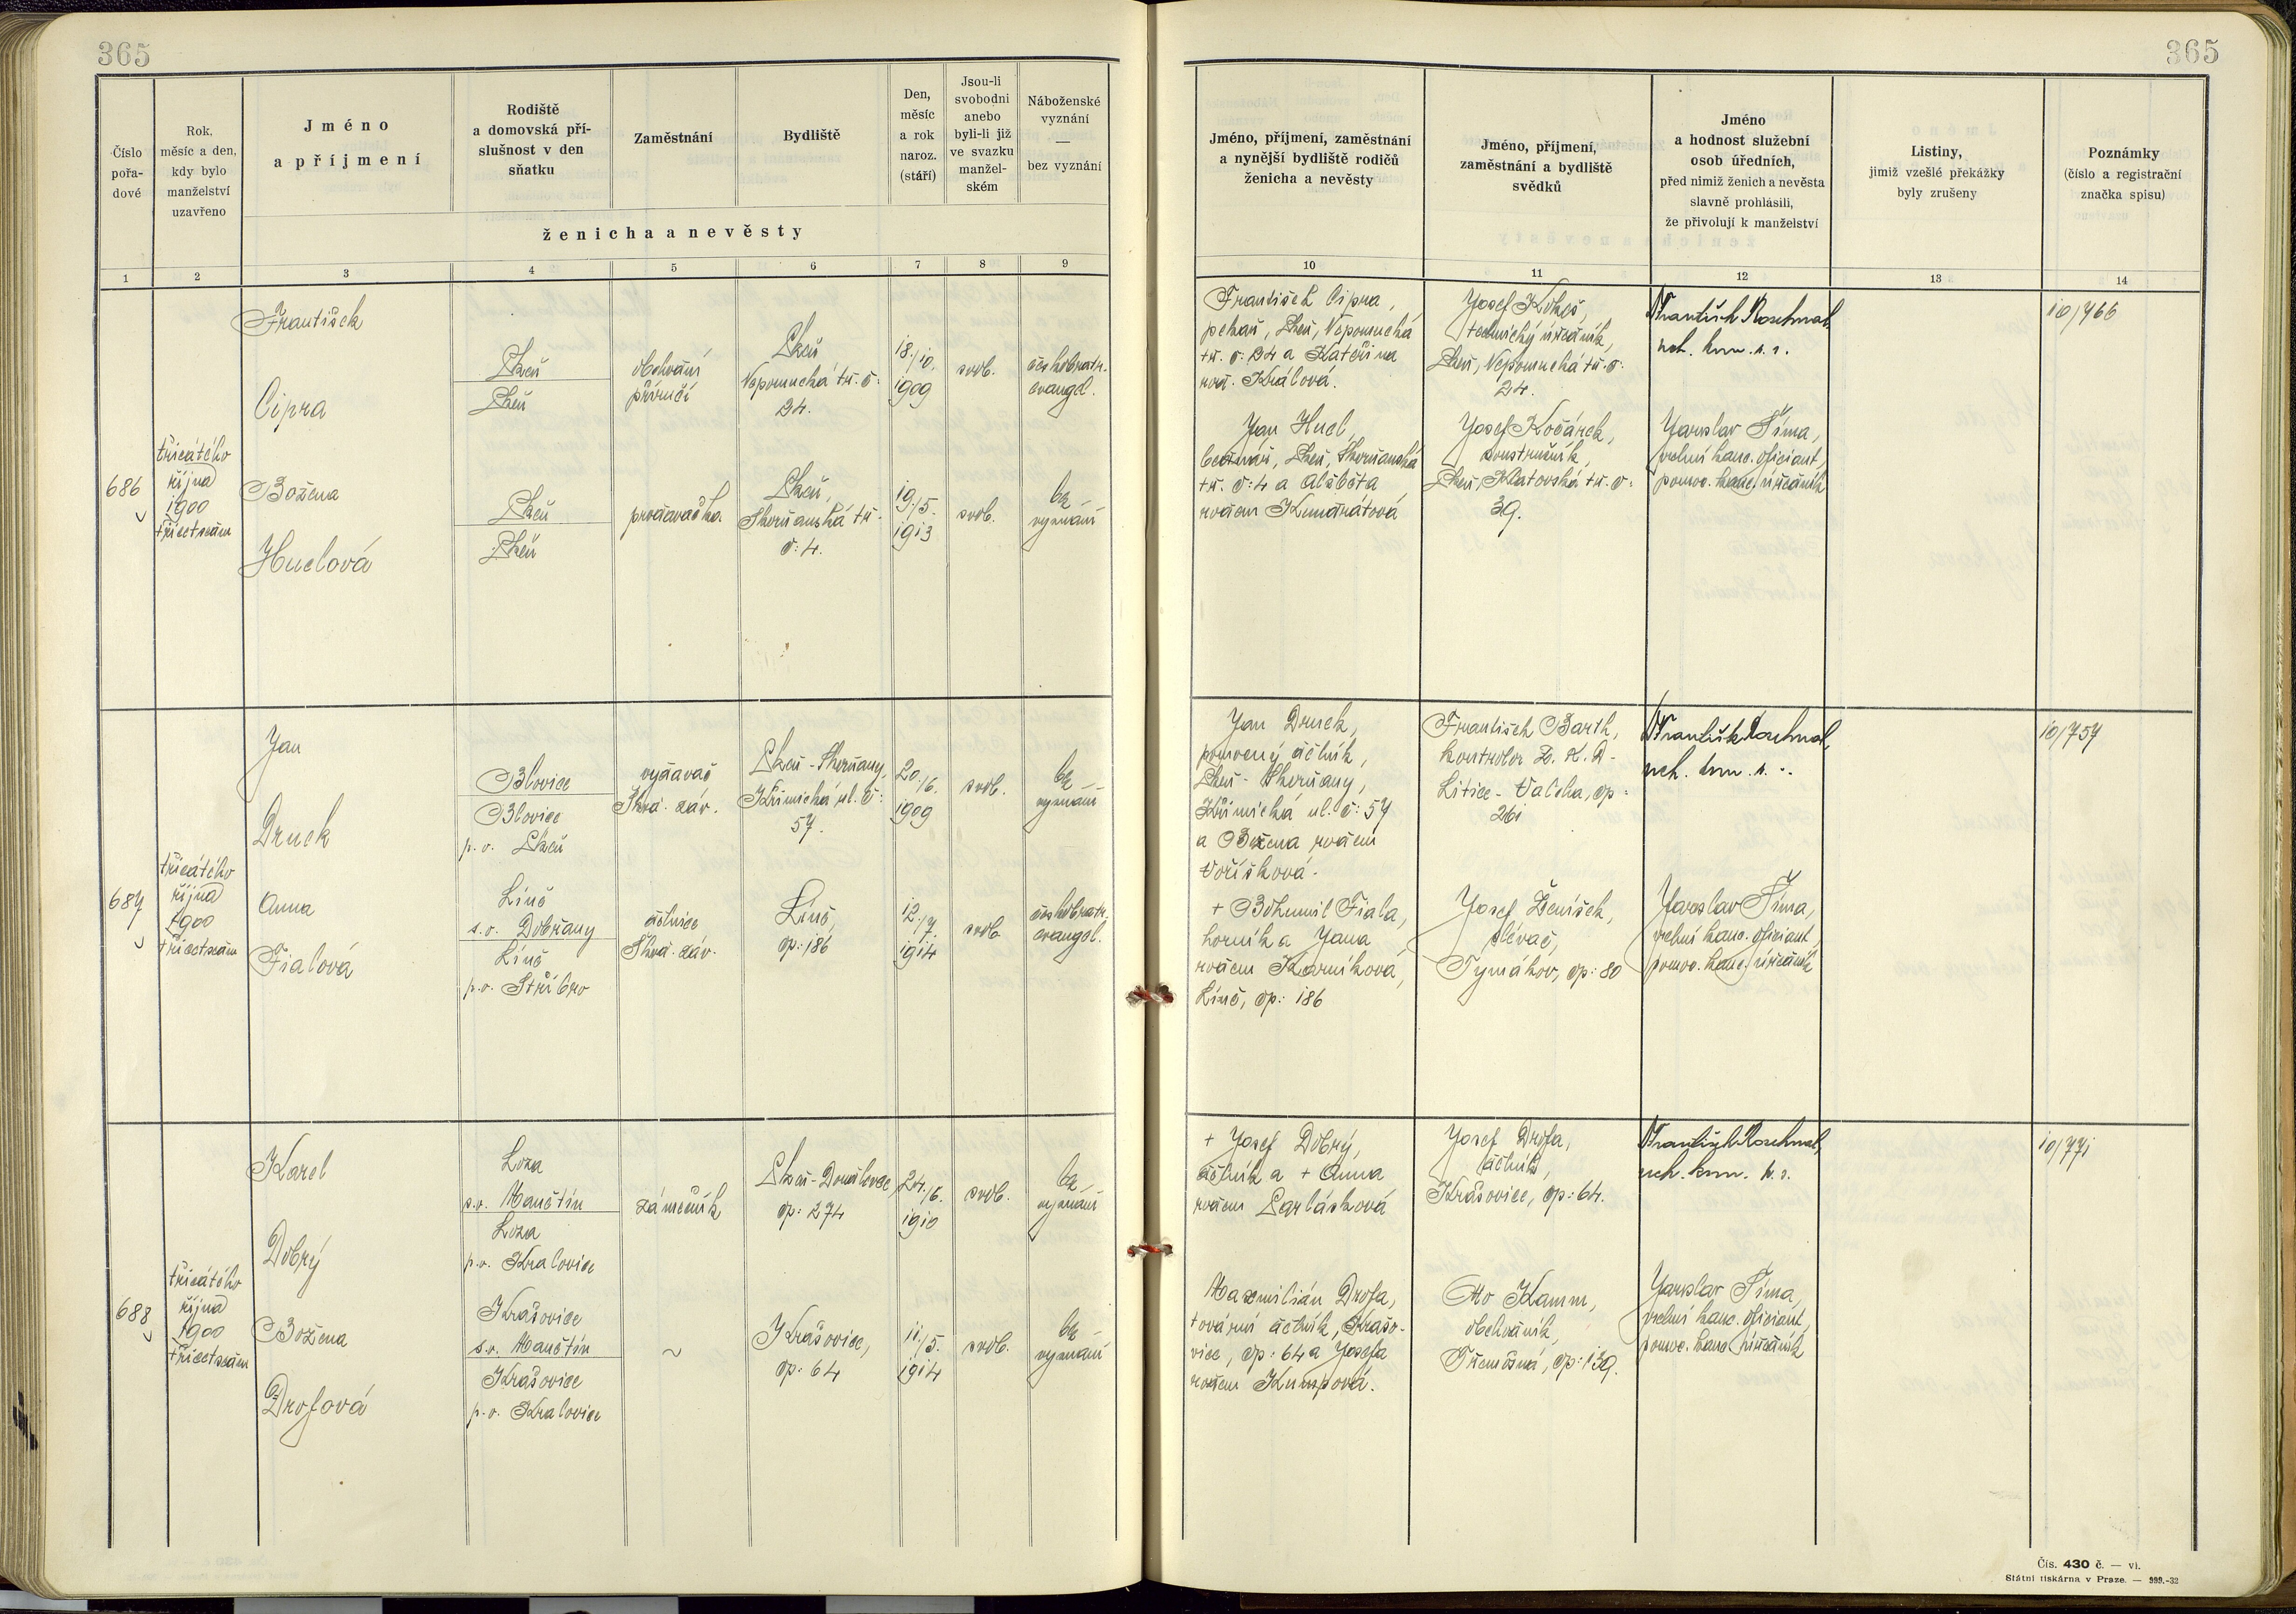 365
365
Číslo
pořa-
dové
Rok,
měsíc a den,
kdy bylo
manželství
uzavřeno
Jméno
a příjmení
Rodiště
a domovská pří-
slušnost v den
sňatku
Zaměstnání
Bydliště
Den,
měsíc
a rok
naroz.
(stáří)
Jsou-li
svobodni
anebo
byli-li již
ve svazku
manžel-
ském
Náboženské
vyznání
—
bez vyznání
ženicha a nevěsty
Jméno, příjmení, zaměstnání
a nynější bydliště rodičů
ženicha a nevěsty
Jméno, příjmení,
zaměstnání a bydliště
svědků
Jméno
a hodnost služební
osob úředních,
před nimiž ženich a nevěsta
slavně prohlásili,
že přivolují k manželství
Listiny,
jimiž vzešlé překážky
byly zrušeny
Poznámky
(číslo a registrační
značka spisu)
1 2 3 4 5 6 7 8 9
10 11 12 13 14
686
třicátého
října
1900
třicetsedm
František
Cipra
Plzeň
Plzeň
obchodní
příručí
Plzeň
Nepomucká tř. č:
24.
18./10.
1909
svob.
českobratr.
evangel.
Božena
Huclová
Plzeň
Plzeň
prodavačka
Plzeň,
Skvrňanská tř.
č: 4.
19./5.
1913
svob.
bez
vyznání
František Cipra,
pekař, Plzeň, Nepomucká
tř. č: 24 a Kateřina
roz. Králová.
Jan Hucl,
bednář, Plzeň, Skvrňanská
tř. č: 4 a Alžběta
rozem Kundrátová
technický úředník,
Plzeň, Nepomucká tř. č:
24.
Josef Kočárek,
soustružník,
Plzeň, Klatovská tř. č:
39.
nch. kom. v. r.
Jaroslav Šíma,
vrchní kanc. oficiant,
pomoc. kanc. úředník
10/766
687
třicátého
října
1900
třicetsedm
Jan
Druck
Blovice
Blovice
p. o. Plzeň
vydavač
Škod. záv.
Plzeň - Skvrňany,
Křimická ul. č:
57.
20./6.
1909
svob.
bez
vyznání
Anna
Fialová
Líně
s. o. Dobřany
Líně
p. o. Stříbro
dělnice
Škod. záv.
Líně,
čp: 186
12./7.
1914
svob.
českobratr.
evangel.
Jan Druck,
pomocný dělník,
Plzeň - Skvrňany,
Křimická ul. č: 57
a Božena rozem
Voříšková.
+ Bohumil Fiala,
horník a Jana
rozem Karníková,
Líně, čp: 186
František Barth,
kontrolor
Litice - Valcha, čp:
261
Josef Ženíšek,
slévač,
Tymákov, čp: 80
nch. kom. v. r.
Jaroslav Šíma,
vrchní kanc. oficiant,
pomoc. kanc. úředník
10/757
688
třicátého
října
1900
třicetsedm
Karel
Dobrý
Loza
s. o. Manětín
Loza
p. o. Kralovice
zámečník
Plzeň - Doudlevce,
čp: 274
24./6.
1910
svob.
bez
vyznání
Božena
Drofová
Krašovice
s. o. Manětín
Krašovice
p. o. Kralovice
~
Krašovice,
čp: 64
11./5.
1914
svob.
bez
vyznání
+ Josef Dobrý,
dělník a + Anna
rozem Parlásková
Maxmilián Drofa,
tovární dělník, Krašo-
vice, čp: 64 a Josefa
rozem Kumpová.
Josef Drofa,
dělník,
Krašovice, čp: 64.
Otto Kamm,
obchodník,
Třemošná, čp: 139.
nch. kom. v. r.
Jaroslav Šíma,
vrchní kanc. oficiant,
pomoc. kanc. úředník
10/771
Čís. 430 č. — vi.
Státní tiskárna v Praze. — 999.-32